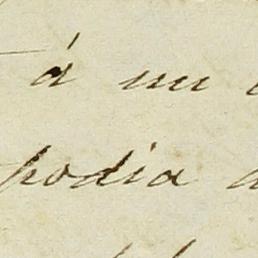 á un
podia